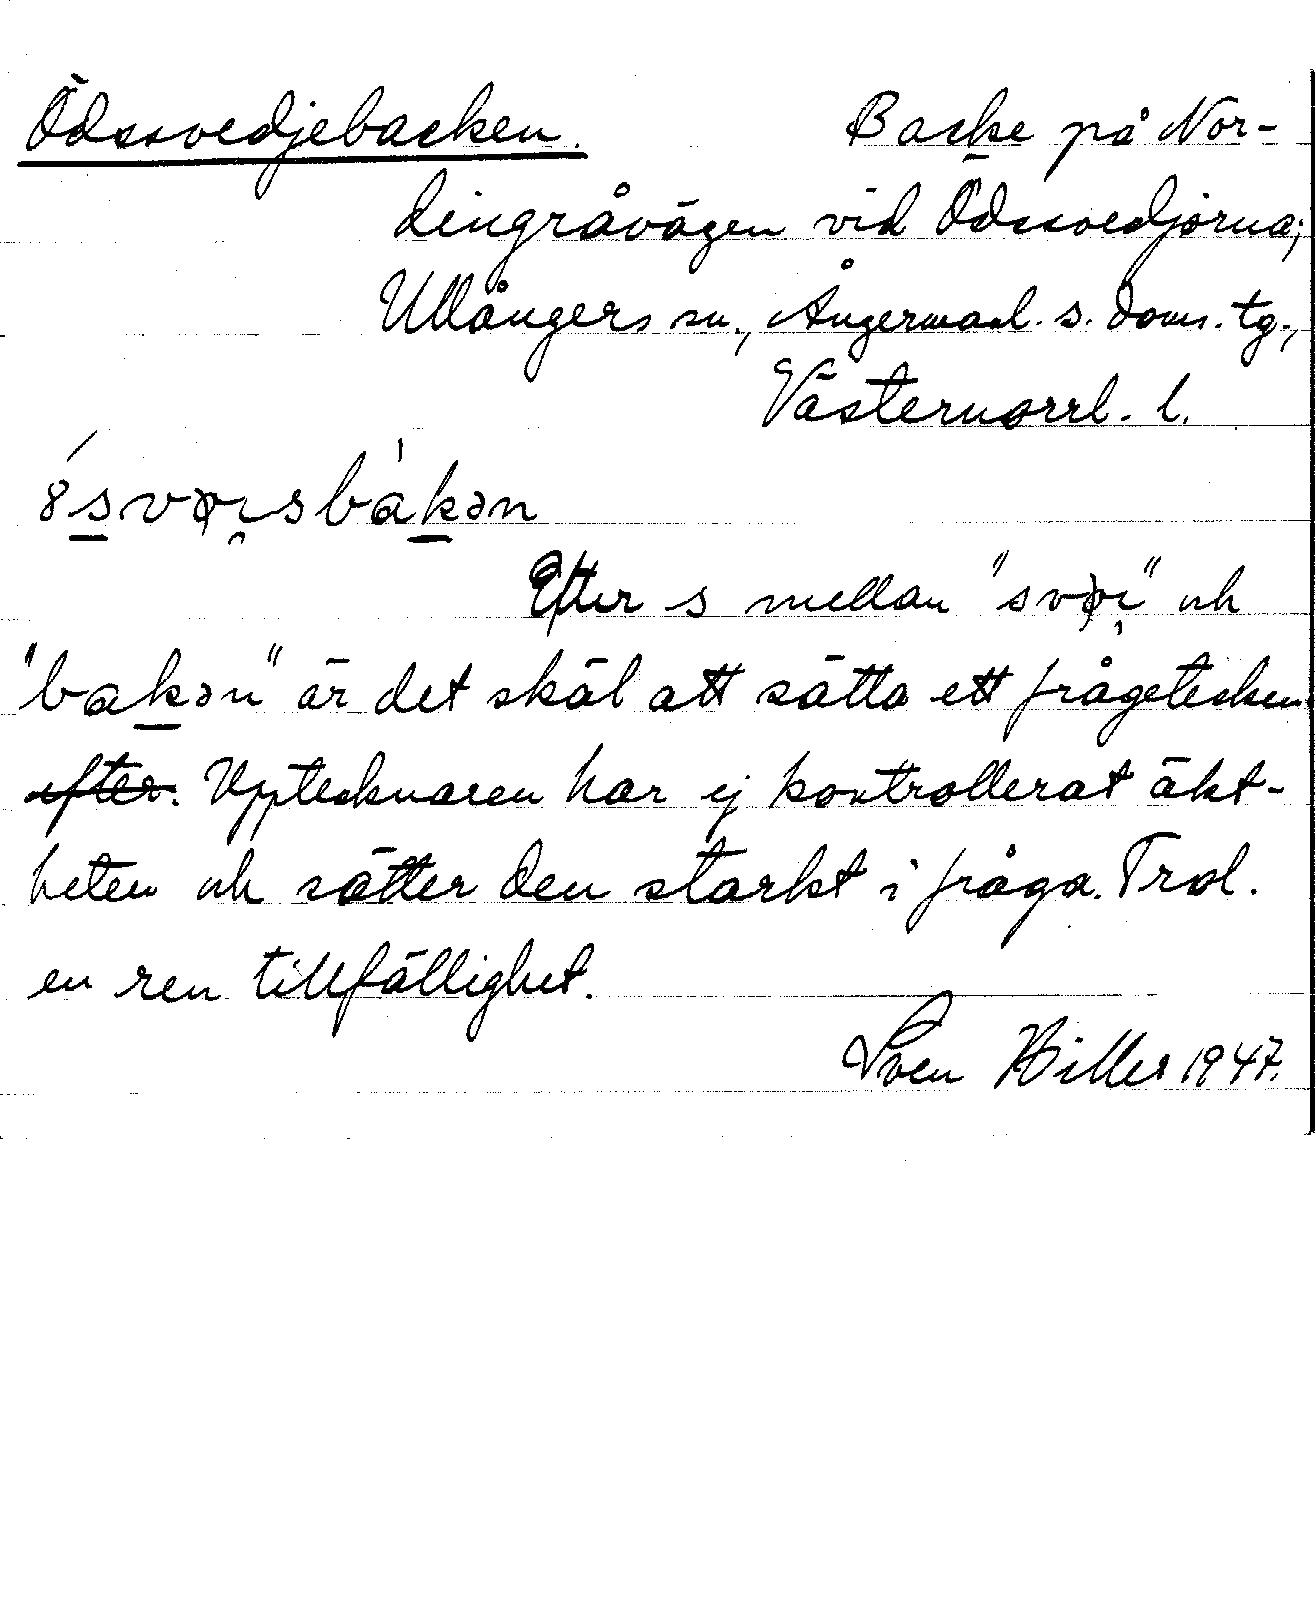 Ödssvedjebacken. Backe på Nor-
dingråvägen vid Ödssvedjorna;
Ullångers sn., Ångermanl. s. doms. tg.,
Västernorrl. l.
Efter s mellan "svøi̯" och
"bakən" är det skäl att sätta ett frågetecken
efter. Upptecknaren har ej kontrollerat äkt-
heten och sätter den starkt i fråga. Trol.
en ren tillfällighet.
Sven Hiller 1947.